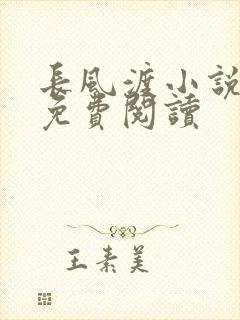 長風渡小說
免費閱讀
王素美